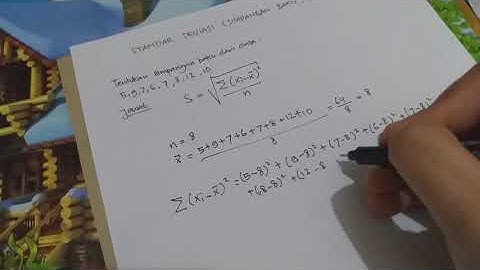 STANDAR DEVIASI (SIMPANGAN BAKU)
Tentukan simpangan baku dari data :
5, 9, 7, 6, 7, 8, 12, 10
Jawab:
S = √(Σ(xi - x̄)²/n)
n = 8
x̄ = (5+9+7+6+7+8+12+10)/8 = 64/8 = 8
Σ(xi - x̄)² = (5-8)² + (9-8)² + (7-8)² + (6-8)² + (7-8)²
+ (8-8)² + (12-8